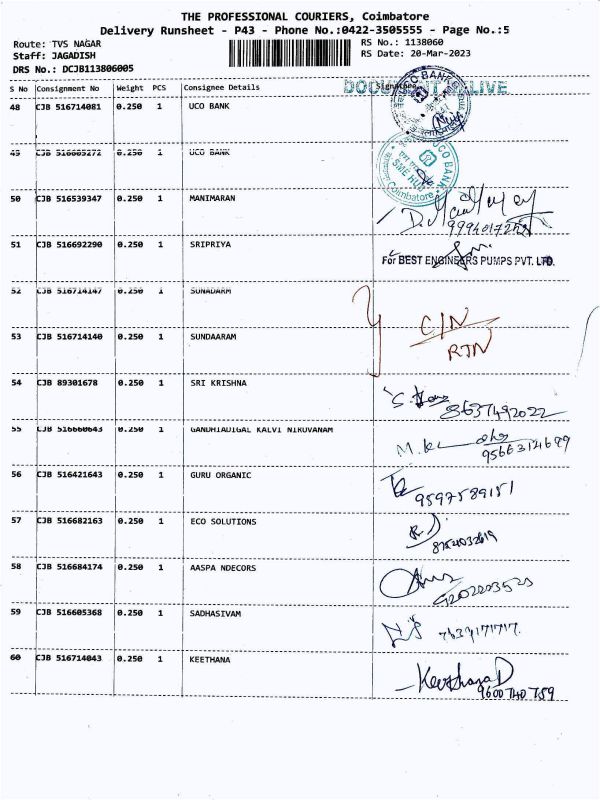 THE PROFESSIONAL COURIERS, Coimbatore
Delivery Runsheet - P43 - Phone No.:0422-3505555 - Page No.:5
Route: TVS NAGAR
Staff: JAGADISH
DRS No.: DCJB113806005
RS No.: 1138060
RS Date: 20-Mar-2023
S No Consignment No Weight PCS Consignee Details Signature
48 CJB 516714081 0.250 1 UCO BANK
49 CJB 516605272 0.250 1 UCO BANK
UCO BANK
SME HUB
Coimbatore
50 CJB 516539347 0.250 1 MANIMARAN
51 CJB 516692290 0.250 1 SRIPRIYA For BEST ENGINEERS PUMPS PVT. LTD.
52 CJB 516714147 0.250 1 SUNADARM
53 CJB 516714140 0.250 1 SUNDAARAM C/N
RTN
54 CJB 89301678 0.250 1 SRI KRISHNA 8637492022
55 CJB 516660643 0.250 1 GANDHIADIGAL KALVI NIRUVANAM
56 CJB 516421643 0.250 1 GURU ORGANIC 9597589151
57 CJB 516682163 0.250 1 ECO SOLUTIONS
58 CJB 516684174 0.250 1 AASPA NDECORS
59 CJB 516605368 0.250 1 SADHASIVAM
60 CJB 516714043 0.250 1 KEETHANA Keethana D
9600740759